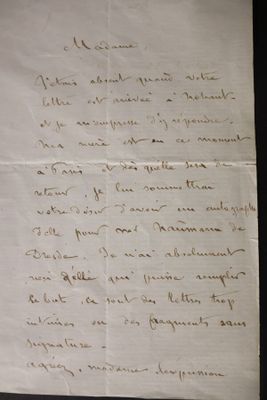 Madame,
J'étais absent quand votre
lettre est arrivée à Nohant
et je m'empresse d'y répondre.
Ma mère est en ce moment
à Paris et dès qu'elle sera de
retour je lui soumettrai
votre désir d'avoir un autographe
d'elle pour Naumann de
Dresde. Je n'ai absolument
rien d'elle qui puisse remplir
le but, ce sont des lettres trop
intimes ou des fragments sans
signature.
agréez, madame, l'expression